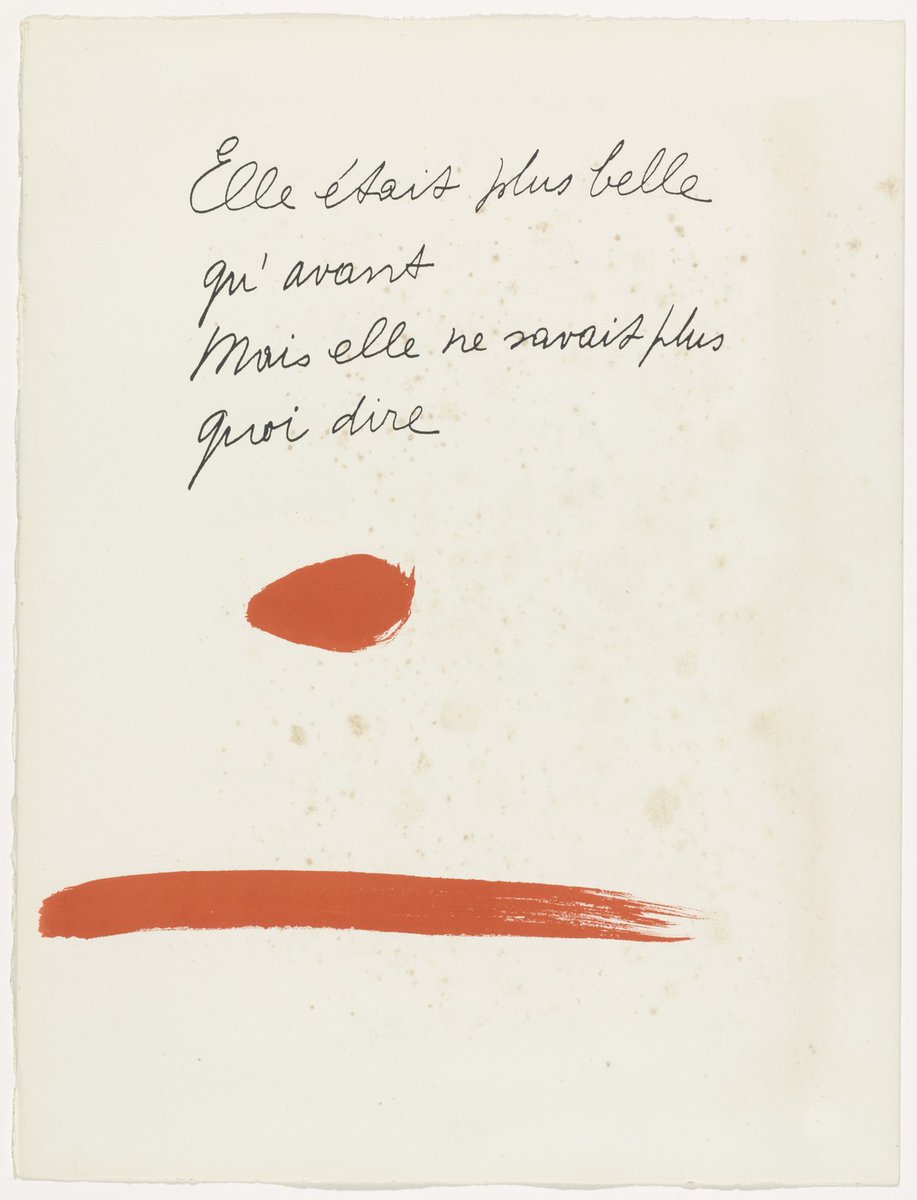 Elle était plus belle
qu'avant
Mais elle ne savait plus
quoi dire